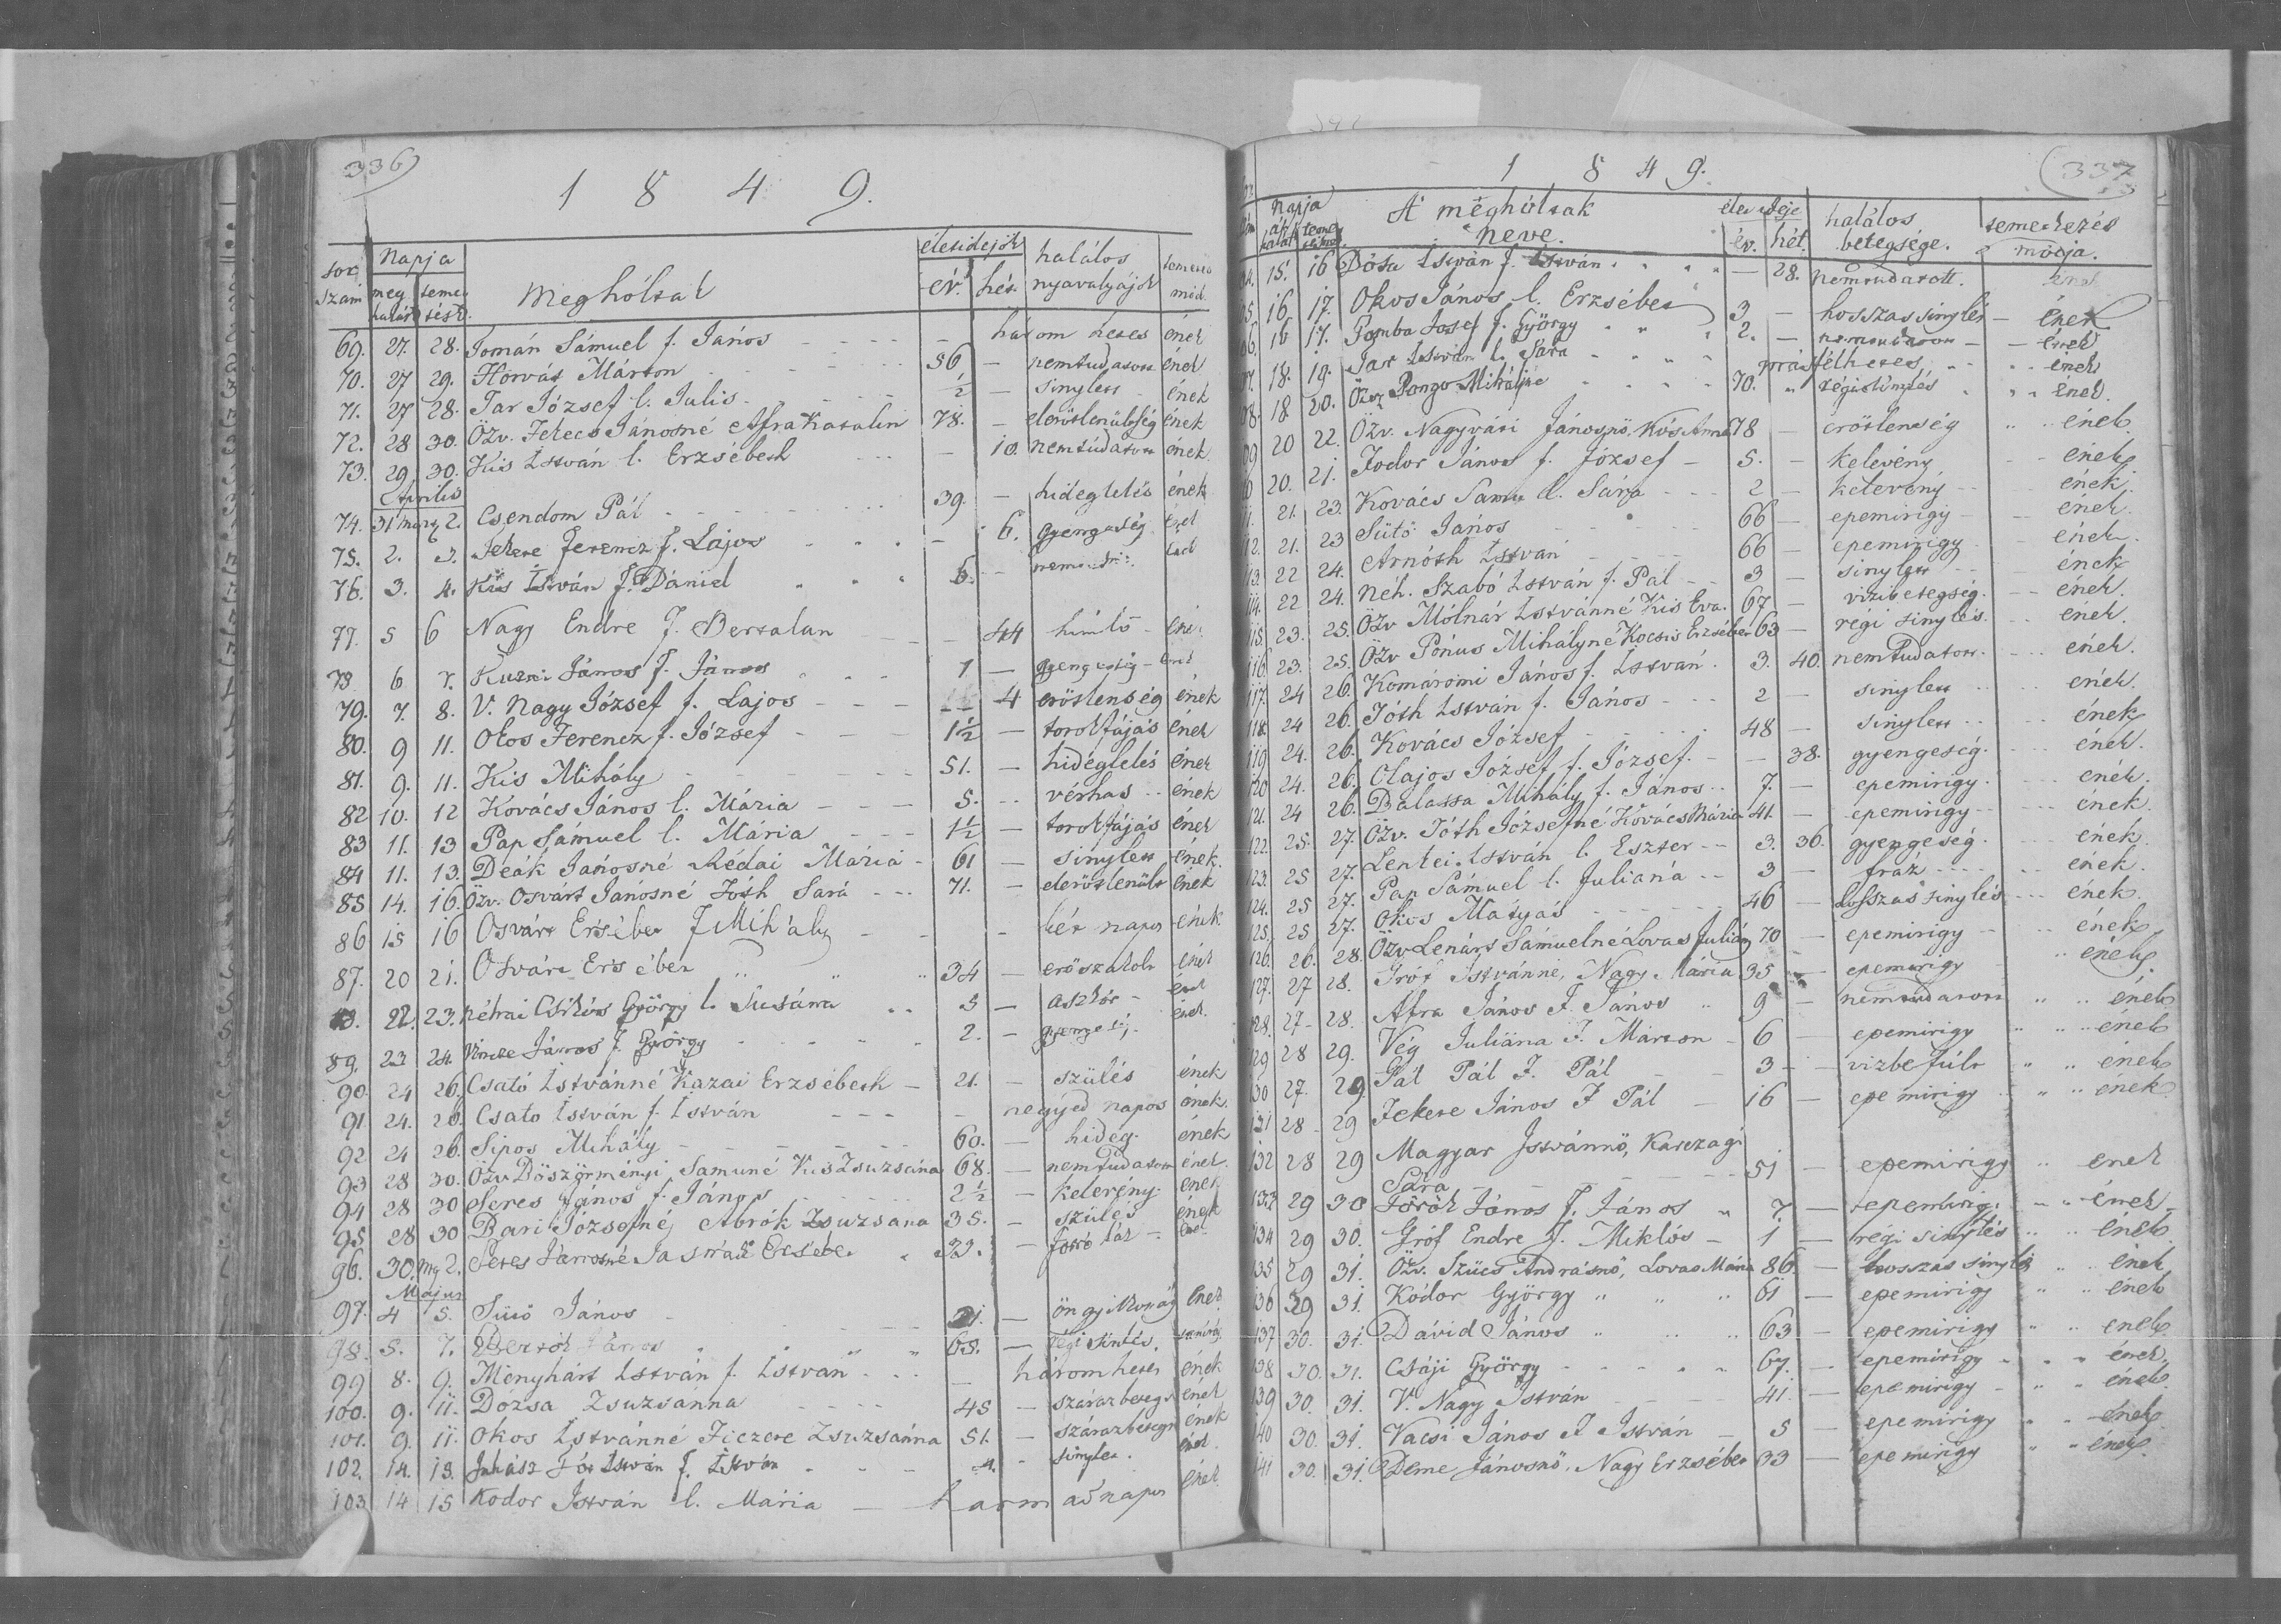 336
1 8 4 9.
sor szám Napja meghalás temetésé Meghóltak életidejök év hét halálos nyavalyájok temetés mód.
69. 27. 28. Tomán Sámuel f. János - három hetes ének
70. 27 29. Horvát Márton 56 - nemtudatott ének
71. 27 28. Tar József l. Julis ½ - sinylett ének
72. 28 30. Özv. Fekecs Jánosné Afra Katalin 78. - elerőtlenülség ének
73. 29 30. Kis István l. Erzsébeth - 10. nemtudatott ének
Április
74. 31 Márcz 2. Csendom Pál 39. - hideglelés ének
75. 2. 3. Fekete Ferencz f. Lajos - 6. gyengeség ének
76. 3. 4. Kis István f. Dániel 6. -
77. 5 6 Nagy Endre f. Bertalan - 44 himlő
78 6 7. Kuzni János f. János 1 - gyengeség ének
79. 7. 8. V. Nagy József f. Lajos - 4 erőtlenség ének
80. 9 11. Okos Ferencz f. József 1½ - torokfájás ének
81. 9. 11. Kis Mihály 51. - hideglelés ének
82 10. 12 Kovács János l. Mária 5. vérhas ének
83 11. 13 Pap Sámuel l. Mária 1½ - torokfájás ének
84 11. 13. Deák Jánosné Rédai Mária 61 - sinylett ének.
85 14. 16. Özv. Osvárt Jánosné Tóth Sara 71. - elerőtlenült ének
86 15 16 Osvárt Ersébet f Mihály két napos ének
87. 20 21. Osvárt Ersébet 34 - erőszakolt ének
22. 23. néhai Csikós György l. Susána 3 - aszkór - ének
89. 23 24. Vincze János f. György 2. - gyengeség. ének.
90. 24 26. Csató Istvánné Kazai Erzsébeth 21. - szülés ének
91 24. 26. Csato István f. István - negyed napos ének.
92 24 26. Sipos Mihály 60. - hideg. ének
93 28 30. Özv Böszörményi Samuné Kis Zsuzsána 68. - nemtudatott ének.
94 28 30 Seres János f. János 2½ - kelevény. ének
95 28 30 Bari Józsefné, Abrók Zsuzsana 35. - szülés ének
96. 30. Máj 2. Seres Jánosné Ersébet 33. - forró láz - ének.
Május
97. 4 5. Sütő János - öngyilkoság ének
98. 5. 7. János 65. - régi sinlés.
99 8. 9. Ményhárt István f. István - három hetes ének
100. 9. 11. Dózsa Zsuzsánna 45 - szárazbetegs ének
101. 9. 11. Okos Istvánné Ficzere Zsuzsánna 51. - szárazbetegs ének
102. 14. 15. Juhász Tót István f. István 4. sinylett. ének.
103 14 15 Kodor István l. Mária - harmadnapos ének
337
1 8 4 9.
Napja A' meghóltak neve. élet ideje év. hét. halálos betegsége. temetkezés módja.
15. 16 Dósa István f. István - 28. nemtudatott. ének
16 17. Okos János l. Erzsébet 3 - hosszassinylés - ének
16 17. Pomba Josef f. György 2. - nemtudatott - ének
18. 19. Tar István l. Sára félhetes ének
18 20. Özv. Pongo Mihályné 70. régisinylés ének.
20 22. Özv. Nagyvási Jánosnö, Kós Anna 78 - erőtlenség ének
20. 21. Fodor János f. József - 5. - kelevény ének
21. 23. Kovács Samu l. Sára 2 - kelevény ének.
12. 21. 23 Sütő János 66 - epemirigy ének.
13. 22 24. Arnóth István 66 - epemirigy ének.
114. 22 24. Néh. Szabó István f. Pál 3 - sinylett ének
115. 23. 25. Özv Mólnár Istvánné Kis Eva. 67 - vizibetegség. ének.
116. 23. 25. Özv Pónus Mihályné Kocsis Erzsébet 63 - régi sinylés. ének.
117. 24 26. Komáromi János f. István. 3. 40. nemtudatott. ének.
118. 24 26. Tóth István f. János 2 - sinylett ének.
119 24. 26. Kovács József 48 - sinylett ének
120 24. 26. Olajos József f. József. - 38. gyengeség. ének.
121. 24 26. Balassa Mihály f. János 7. - epemirigy. ének.
122. 25. 27. Özv. Tóth Józsefné Kovács Mária 41. - epemirigy ének.
123. 25 27. Lentei István l. Eszter 3. 36. gyengeség. ének.
124. 25 27. Pap Sámuel l. Juliana 3 - fráz ének.
125. 25 27. Okos Matyás 46 - hosszas sinylés ének.
126. 26. 28. Özv Lenárt Sámuelné Lovas Julián 70 - epemirigy ének
127. 27 28. Gróf Istvánné, Nagy Mária 35 - epemirigy ének
128. 27- 28. Afra János f. János 9 - nemtudatott ének
129 28 29. Vég Juliána f. Márton 6 - epemirigy ének
130 27. 29. Pál Pál f. Pál 3 - vizbe fúlt ének
131 28 - 29 Fekete János f Pál 16 - epemirigy ének
132 28 29 Magyar Istvánnö, Karczagi Sára 51 - epemirigy ének
133 29 30 Török János f. János 7. - epemirigy ének.
134 29 30. Gróf Endre f. Miklós 1 - régi sinylés ének
135 29 31. Özv. Szücs Andrásnö, Lovas Mária 86. - hosszas sinylés ének
136 29 31. Kódor György 61 - epemirigy ének
137 30. 31. Dávid János 63 - epemirigy ének
138 30. 31. Csáji György 67. - epemirigy ének.
139 30. 31. V. Nagy István 41. - epemirigy ének
140 30. 31. Vacsi János f István 5 - epemirigy ének
141 30. 31. Deme Jánosnö. Nagy Erzsébet 33 - epemirigy ének